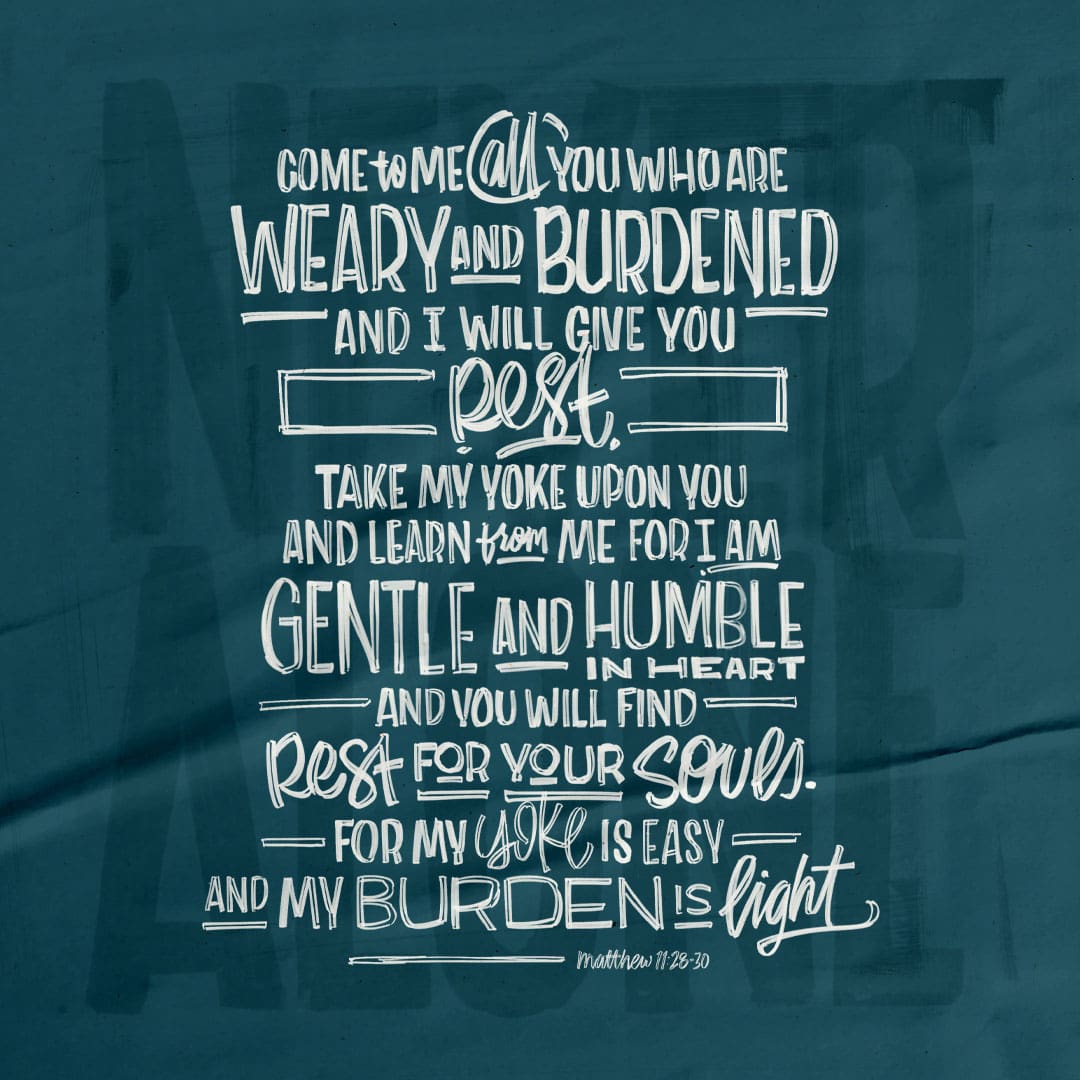 COME to ME all YOU WHO ARE
WEARY AND BURDENED
AND I WILL GIVE YOU
Rest.
TAKE MY YOKE UPON YOU
AND LEARN from ME FOR I AM
GENTLE AND HUMBLE
IN HEART
AND YOU WILL FIND
Rest FOR YOUR Souls.
FOR MY YOKE IS EASY
AND MY BURDEN IS light
Matthew 11:28-30
NEVER
ALONE